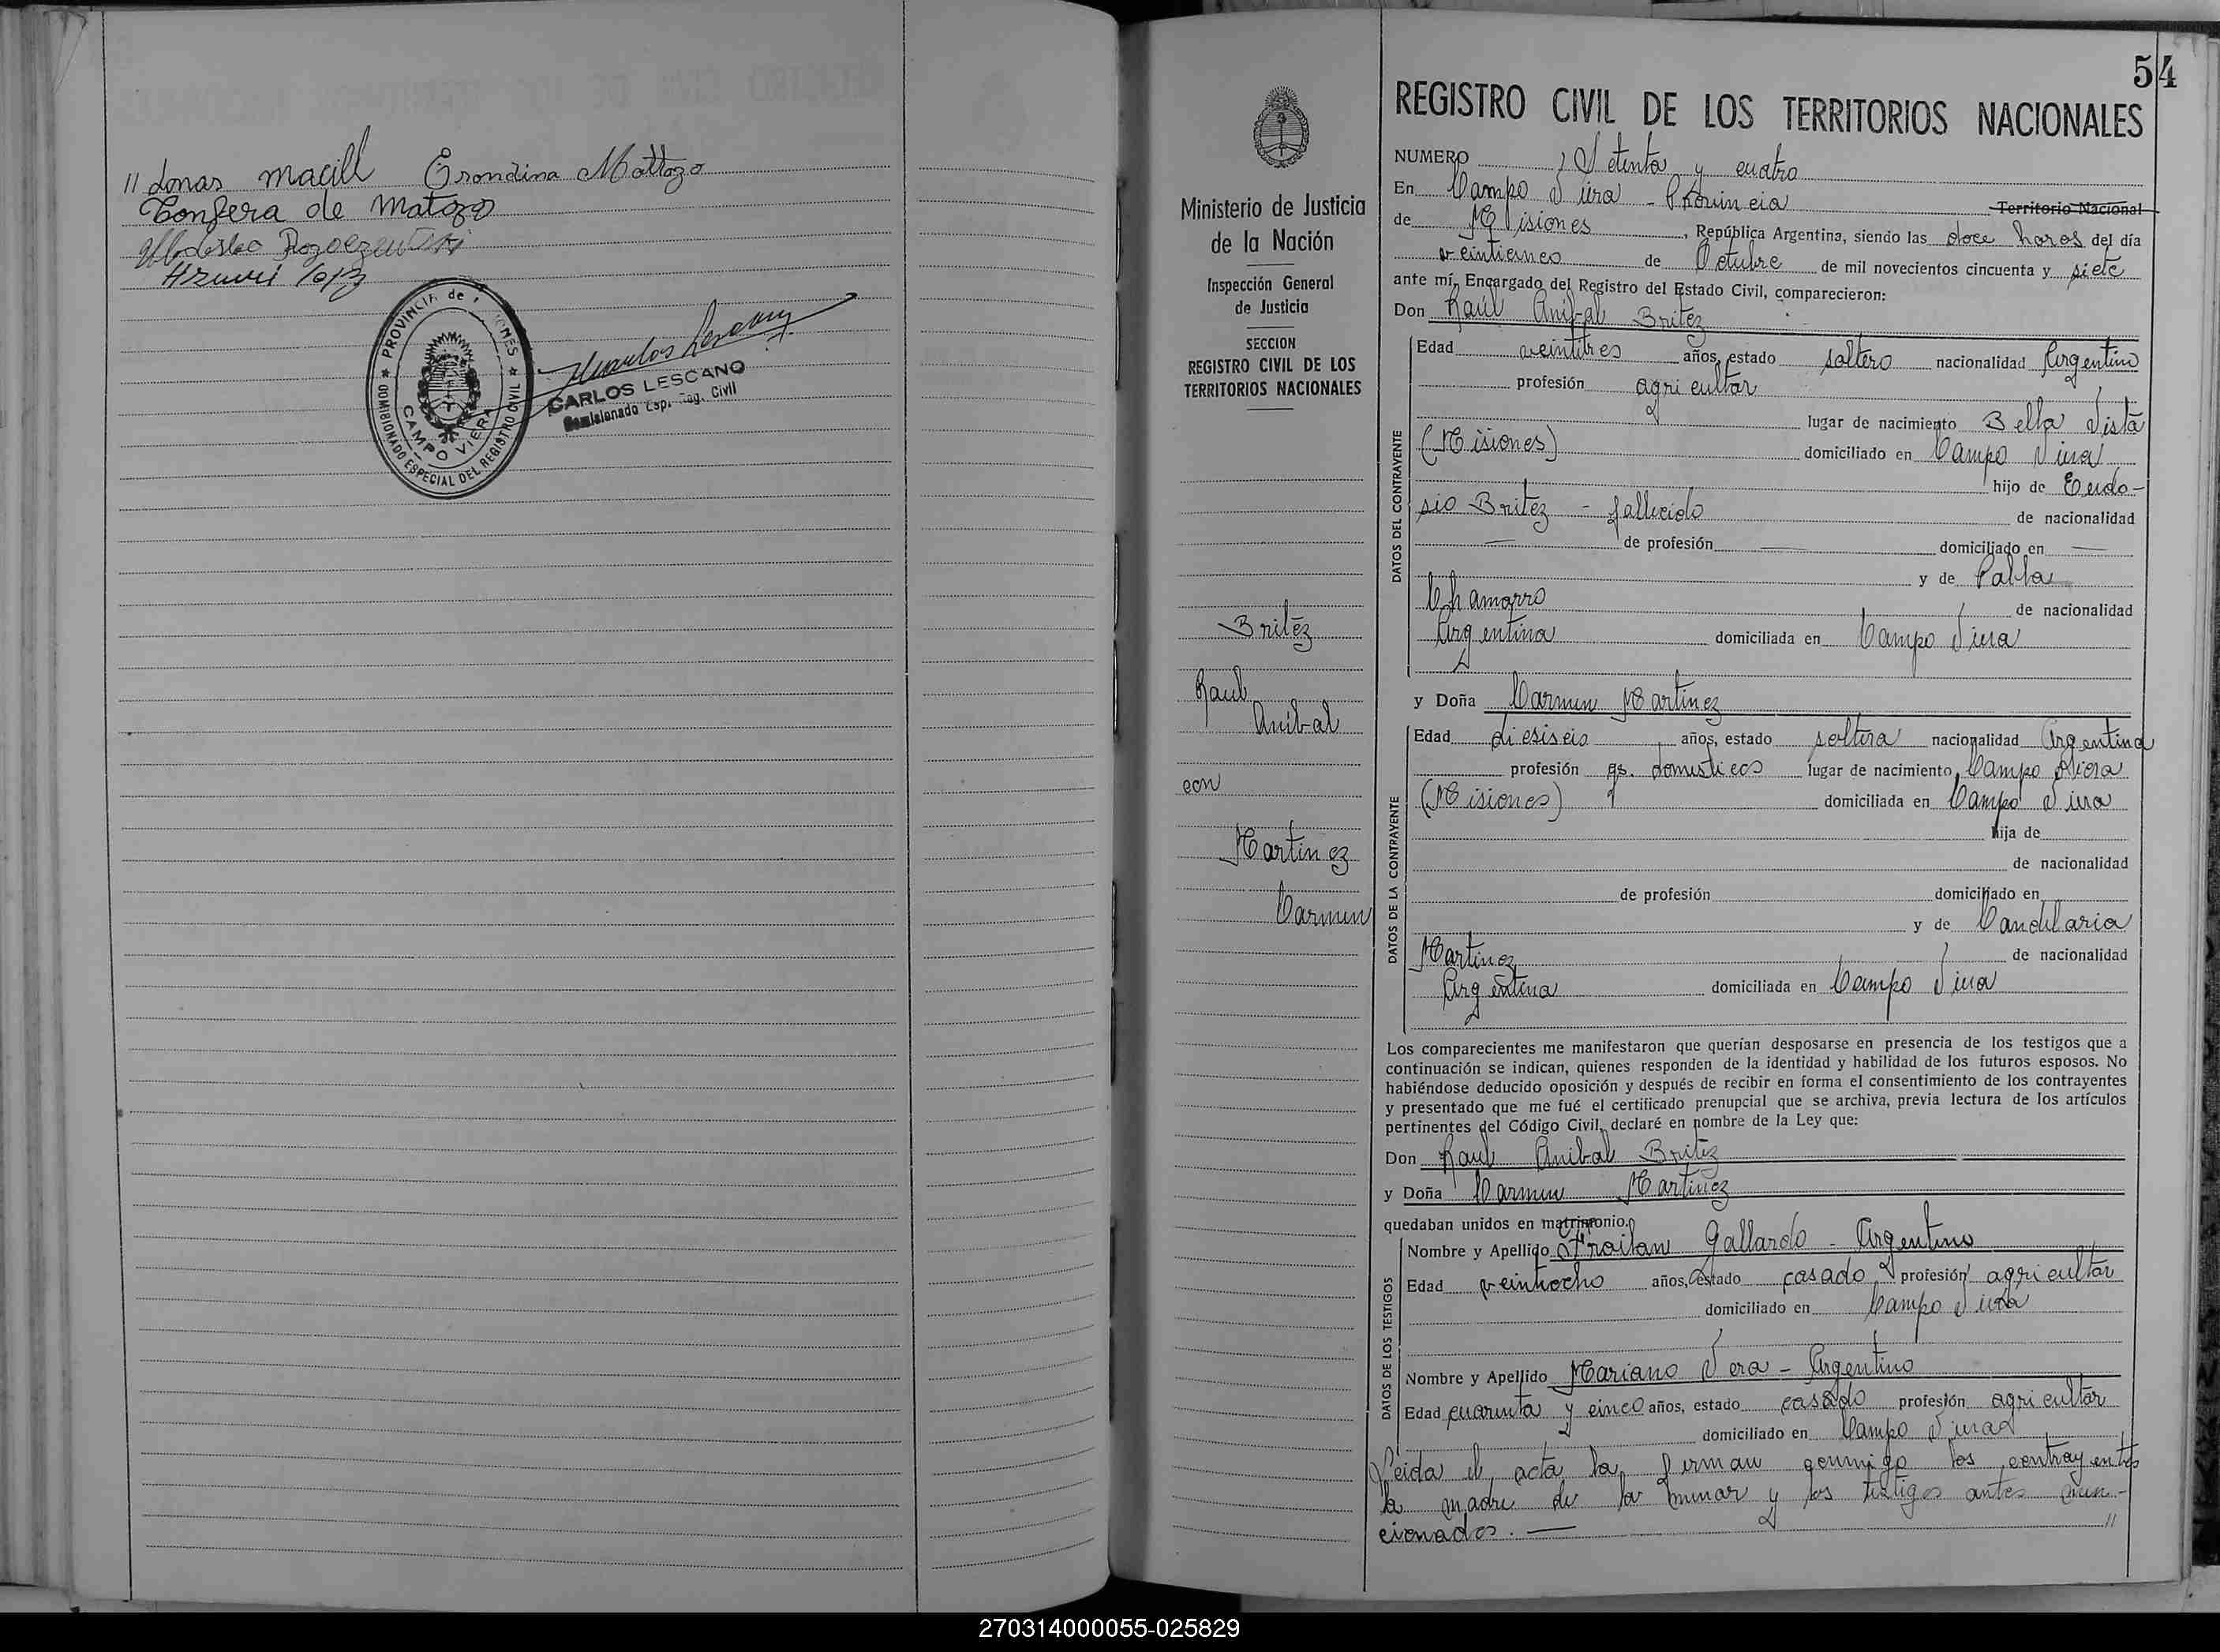 // donas macill Erondina Mattozo
Tonfera de Matozo
CARLOS LESCANO
Comisionado Esp. Reg. Civil
PROVINCIA de MISIONES
COMISIONADO ESPECIAL DEL REGISTRO CIVIL
CAMPO VIERA
54
Ministerio de Justicia
de la Nación
Inspección General
de Justicia
SECCION
REGISTRO CIVIL DE LOS
TERRITORIOS NACIONALES
Britez
Raul
Anibal
con
Martinez
Carmen
REGISTRO CIVIL DE LOS TERRITORIOS NACIONALES
NUMERO Setenta y cuatro
En Campo Viera - Provincia Territorio Nacional
de Misiones, República Argentina, siendo las doce horas del día
veinticinco de Octubre de mil novecientos cincuenta y siete
ante mí, Encargado del Registro del Estado Civil, comparecieron:
Don Raúl Anibal Britez
DATOS DEL CONTRAYENTE
Edad veintitres años, estado soltero nacionalidad Argentino
profesión agricultor
lugar de nacimiento Bella Vista
(Misiones) domiciliado en Campo Viera
hijo de Eudo-
sio Britez - fallecido de nacionalidad
— de profesión — domiciliado en —
y de Pabla
Chamorro de nacionalidad
Argentina domiciliada en Campo Viera
y Doña Carmen Martinez
DATOS DE LA CONTRAYENTE
Edad diesiseis años, estado soltera nacionalidad Argentina
profesión qs. domesticos lugar de nacimiento Campo Viera
(Misiones) domiciliada en Campo Viera
hija de
de nacionalidad
de profesión domiciliado en
y de Candelaria
Martinez de nacionalidad
Argentina domiciliada en Campo Viera
Los comparecientes me manifestaron que querían desposarse en presencia de los testigos que a
continuación se indican, quienes responden de la identidad y habilidad de los futuros esposos. No
habiéndose deducido oposición y después de recibir en forma el consentimiento de los contrayentes
y presentado que me fué el certificado prenupcial que se archiva, previa lectura de los artículos
pertinentes del Código Civil, declaré en nombre de la Ley que:
Don Raul Anibal Britez
y Doña Carmen Martinez
quedaban unidos en matrimonio.
DATOS DE LOS TESTIGOS
Nombre y Apellido Froilan Gallardo - Argentino
Edad veintiocho años, estado casado profesión agricultor
domiciliado en Campo Viera
Nombre y Apellido Mariano Vera - Argentino
Edad cuarenta y cinco años, estado casado profesión agricultor
domiciliado en Campo Viera
Leida el acta la firman conmigo los contrayentes
la madre de la menor y los testigos antes men-
cionados. — //
270314000055-025829